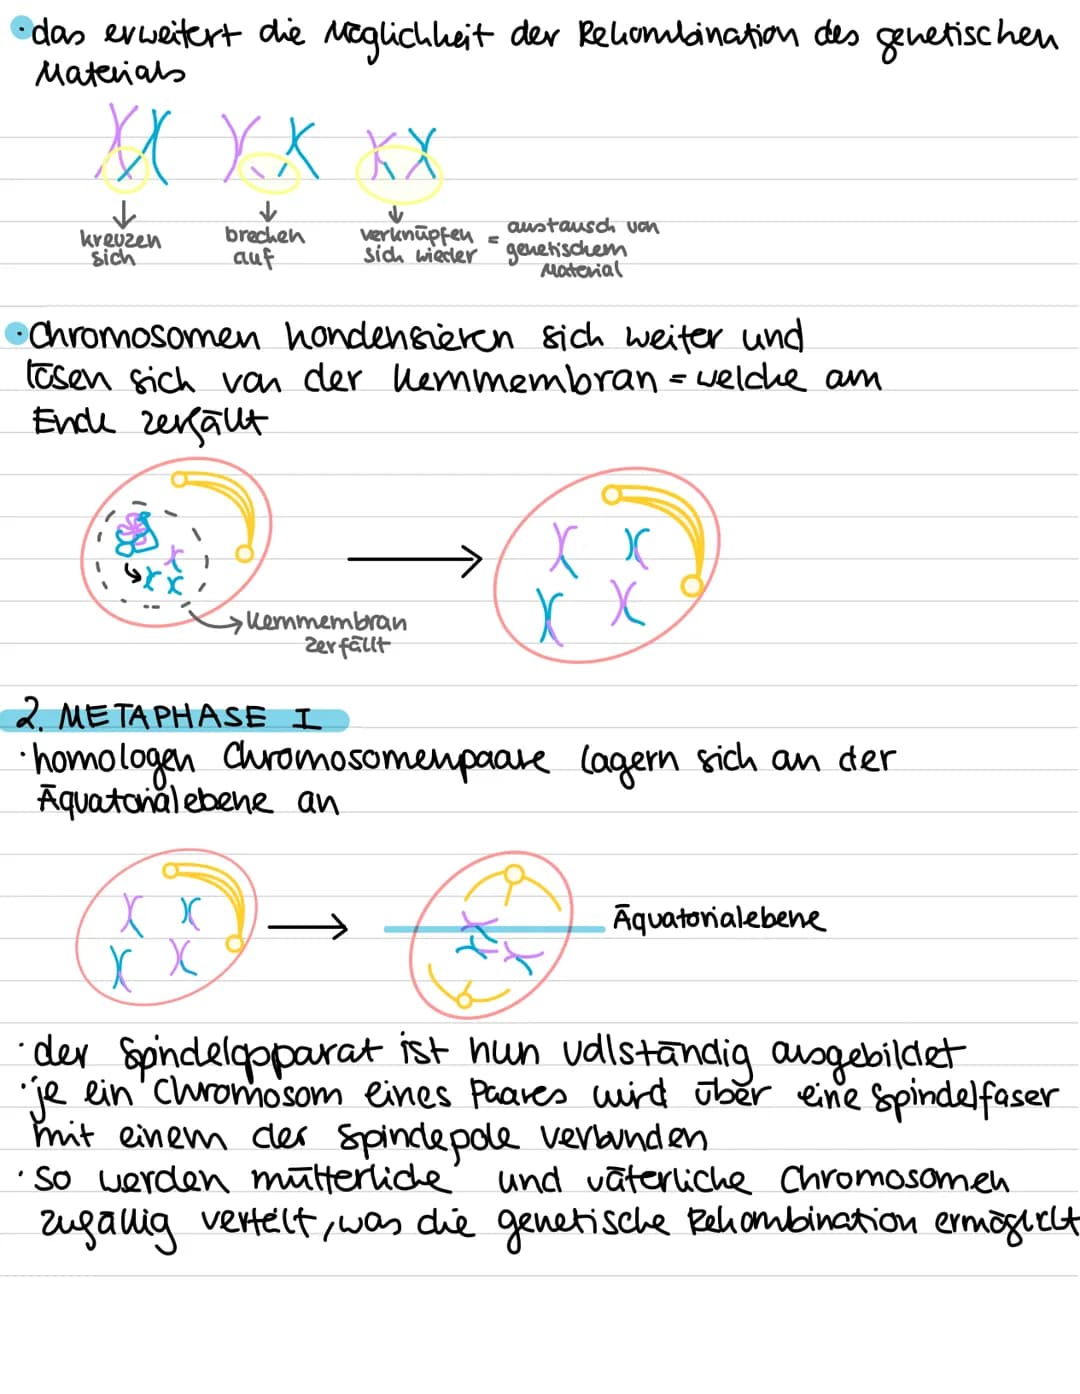 • das erweitert die Möglichkeit der Rekombination des genetischen
Materials
↓ ↓ ↓
kreuzen sich
brechen auf
verknüpfen sich wieder = austausch von genetischem Material
• Chromosomen kondensieren sich weiter und
lösen sich von der Kernmembran = welche am
Ende zerfällt
Kernmembran
zerfällt
2. METAPHASE I
· homologen Chromosomenpaare lagern sich an der
Äquatorialebene an
Äquatorialebene
· der Spindelapparat ist nun vollständig ausgebildet
· je ein Chromosom eines Paares wird über eine Spindelfaser
mit einem der Spindepole verbunden
· so werden mütterliche und väterliche Chromosomen
zufällig vertelt, was die genetische Rekombination ermöglicht